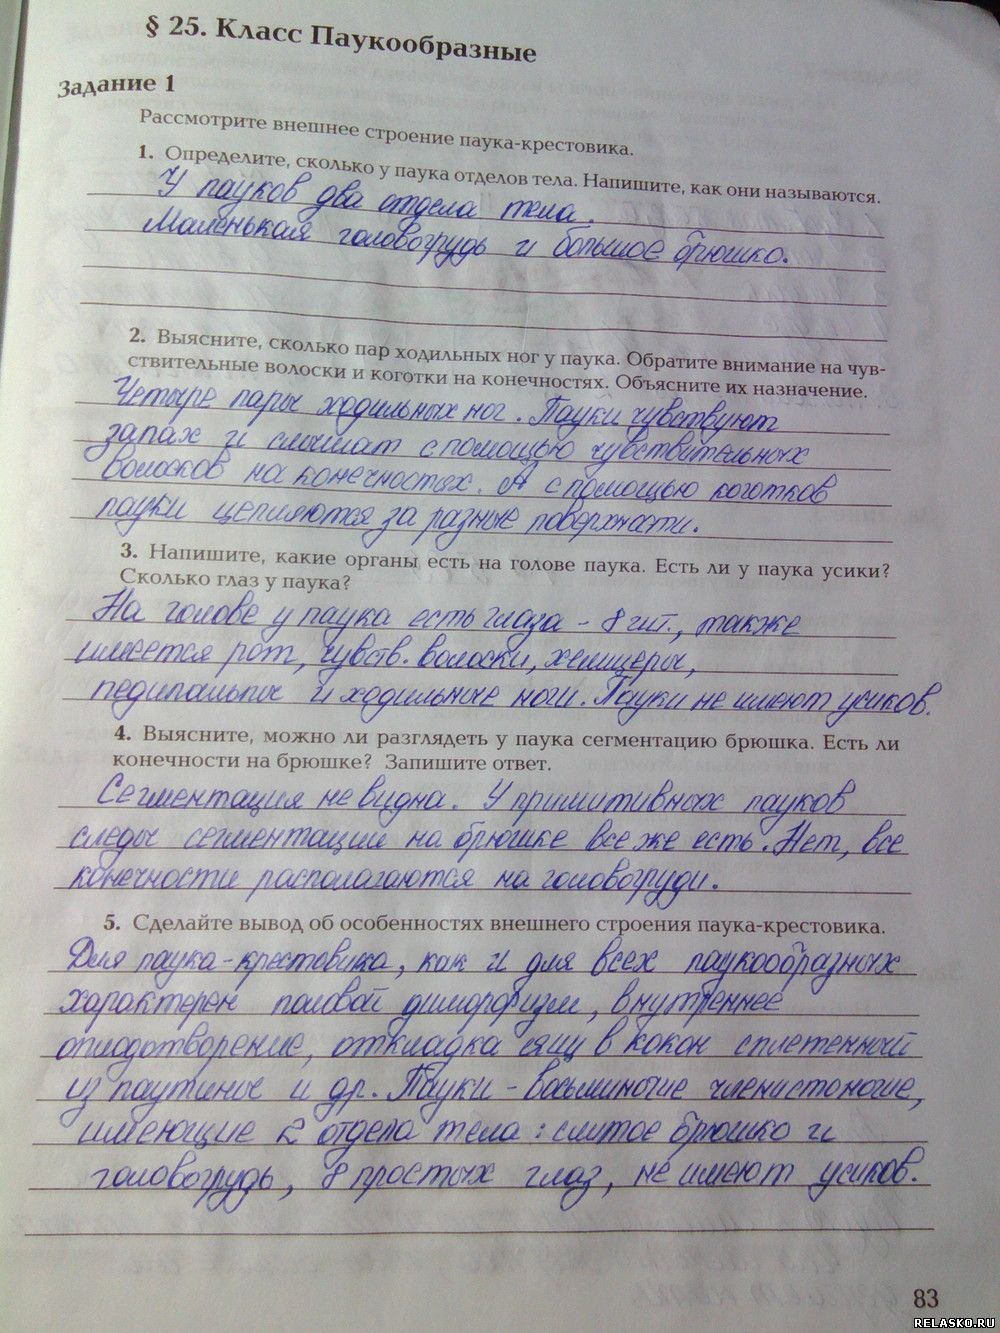 § 25. Класс Паукообразные
Задание 1
Рассмотрите внешнее строение паука-крестовика.
1. Определите, сколько у паука отделов тела. Напишите, как они называются.
У пауков два отдела тела.
Маленькая головогрудь и большое брюшко.
2. Выясните, сколько пар ходильных ног у паука. Обратите внимание на чув-
ствительные волоски и коготки на конечностях. Объясните их назначение.
Четыре пары ходильных ног. Пауки чувствуют
запах и слышат с помощью чувствительных
волосков на конечностях. А с помощью коготков
пауки цепляются за разные поверхности.
3. Напишите, какие органы есть на голове паука. Есть ли у паука усики?
Сколько глаз у паука?
На голове у паука есть глаза - 8 шт., также
имеется рот, чувств. волоски, хелицеры,
педипальпы и ходильные ноги. Пауки не имеют усиков.
4. Выясните, можно ли разглядеть у паука сегментацию брюшка. Есть ли
конечности на брюшке? Запишите ответ.
Сегментация не видна. У примитивных пауков
следы сегментации на брюшке все же есть. Нет, все
конечности располагаются на головогруди.
5. Сделайте вывод об особенностях внешнего строения паука-крестовика.
Для паука-крестовика, как и для всех паукообразных
характерен половой диморфизм, внутреннее
оплодотворение, откладка яиц в кокон сплетенный
из паутины и др. Пауки - восьминогие членистоногие,
имеющие 2 отдела тела: слитое брюшко и
головогрудь, 8 простых глаз, не имеют усиков.
83
RELASKO.RU